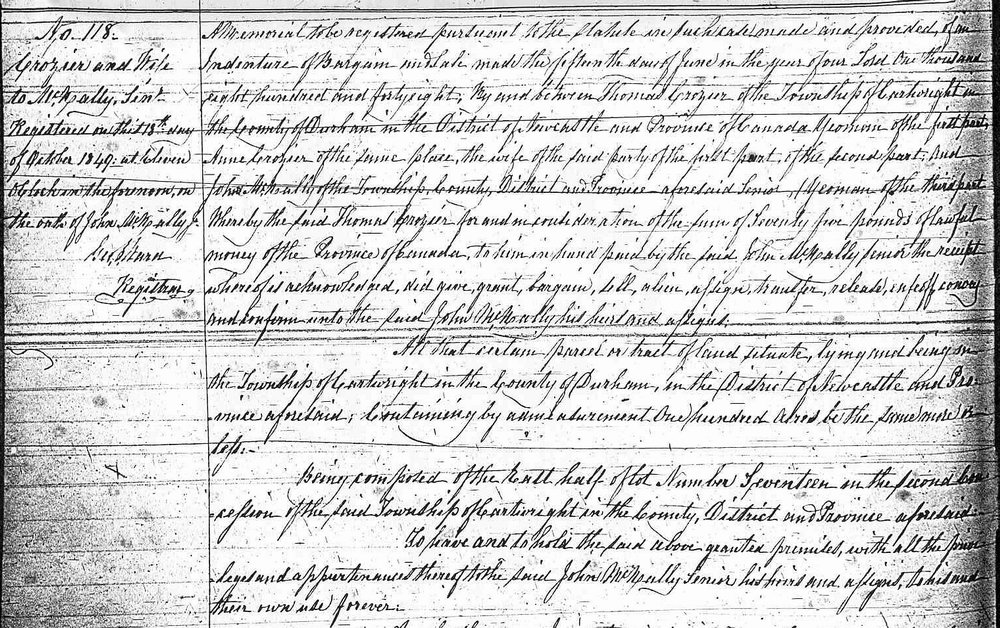 No. 118.
Crozier and Wife
to McNally, Senr.
Registered on this 18th day
of October 1849. at Eleven
O'clock in the forenoon, on
the oath of John McNally, Jr.
Geo. S. Ward
Registrar
A Memorial to be registered pursuant to the Statute in such case made and provided, of an
Indenture of Bargain and Sale made the fifteenth day of June in the year of our Lord One thousand
eight hundred and forty eight, By and between Thomas Crozier of the Township of Cartwright in
the County of Durham in the District of Newcastle and Province of Canada Yeoman of the first part,
Anne Crozier of the same place, the wife of the said party of the first part, of the second part, and
John McNally of the Township, County, District and Province aforesaid Senior Yeoman of the third part
Whereby the said Thomas Crozier for and in consideration of the sum of Seventy five pounds of lawful
money of the Province of Canada, to him in hand paid by the said John McNally Senior the receipt
whereof is acknowledged, did give, grant, bargain, sell, alien, assign, transfer, release, enfeoff, convey
and confirm unto the said John McNally his heirs and assigns;
All that certain parcel or tract of land situate, lying and being in
the Township of Cartwright in the County of Durham, in the District of Newcastle and Pro-
vince aforesaid; Containing by admeasurement One hundred Acres be the same more or
less.-
Being composed of the East half of lot Number Seventeen in the second Con
-cession of the said Township of Cartwright in the County, District and Province aforesaid
To have and to hold the said above granted premises, with all the privi
-leges and appurtenances thereof to the said John McNally Senior his heirs and assigns, to his and
their own use forever.